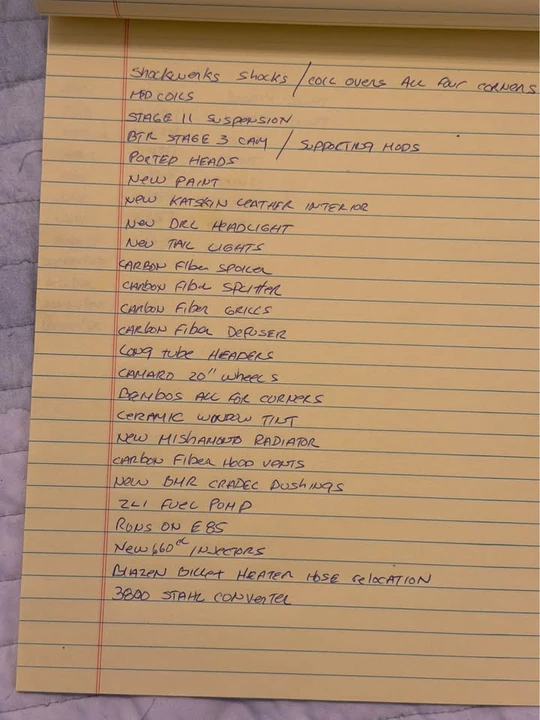 Shockwerks Shocks / COIL OVERS ALL FOUR CORNERS
MSD COILS
STAGE 11 SUSPENSION
BTR STAGE 3 CAM / SUPPORTING MODS
PORTED HEADS
NEW PAINT
NEW KATSKIN LEATHER INTERIOR
NEW DRL HEADLIGHT
NEW TAIL LIGHTS
CARBON Fiber SPOILER
CARBON Fiber SPLitter
CARBON Fiber GRILLS
CARBON Fiber DEFUSER
LONG tube HEADERS
CAMARO 20" WHEELS
BREMBOS ALL FOR CORNERS
CERAMIC WINDOW TINT
NEW MISHAMOTO RADIATOR
CARBON Fiber HOOD VENTS
NEW BMR CRADEL BUSHINGS
ZL1 FUEL PUMP
RUNS ON E85
NEW 660cc INJECTORS
BILLET HEATER HOSE RELOCATION
3800 STAHL CONVERTER